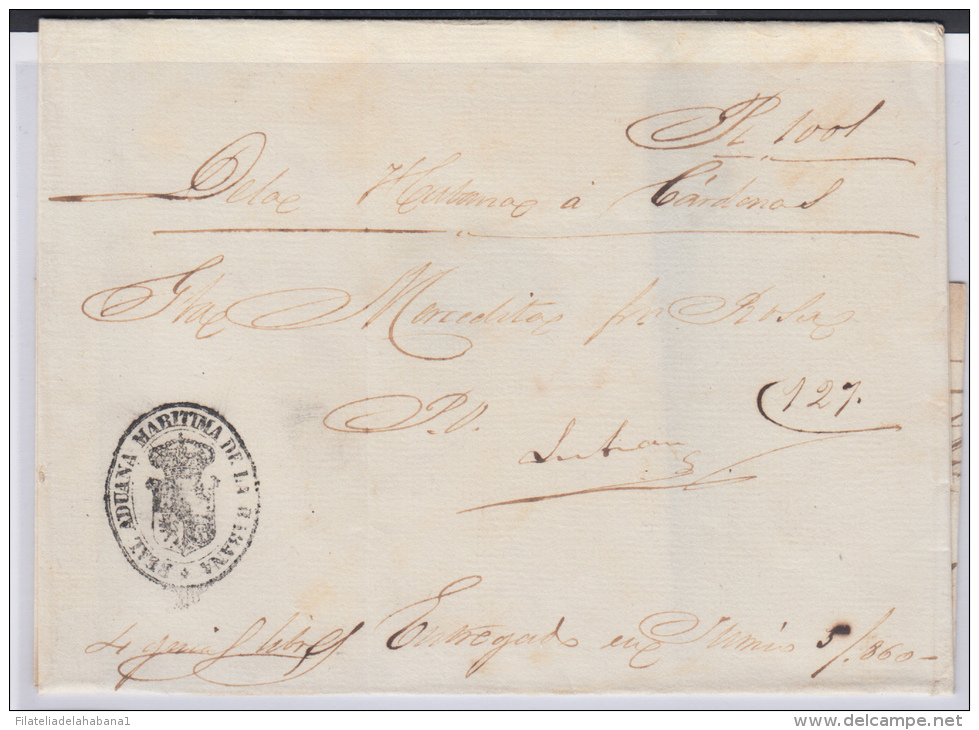 Rl 1001
De la Habana á Cárdenas
Mercedita por Rosa
127.
P.O.
REAL ADUANA MARITIMA DE LA HABANA
libres Entregado en Junio 5/860
FilateliadelaHabana1
www.delcampe.net